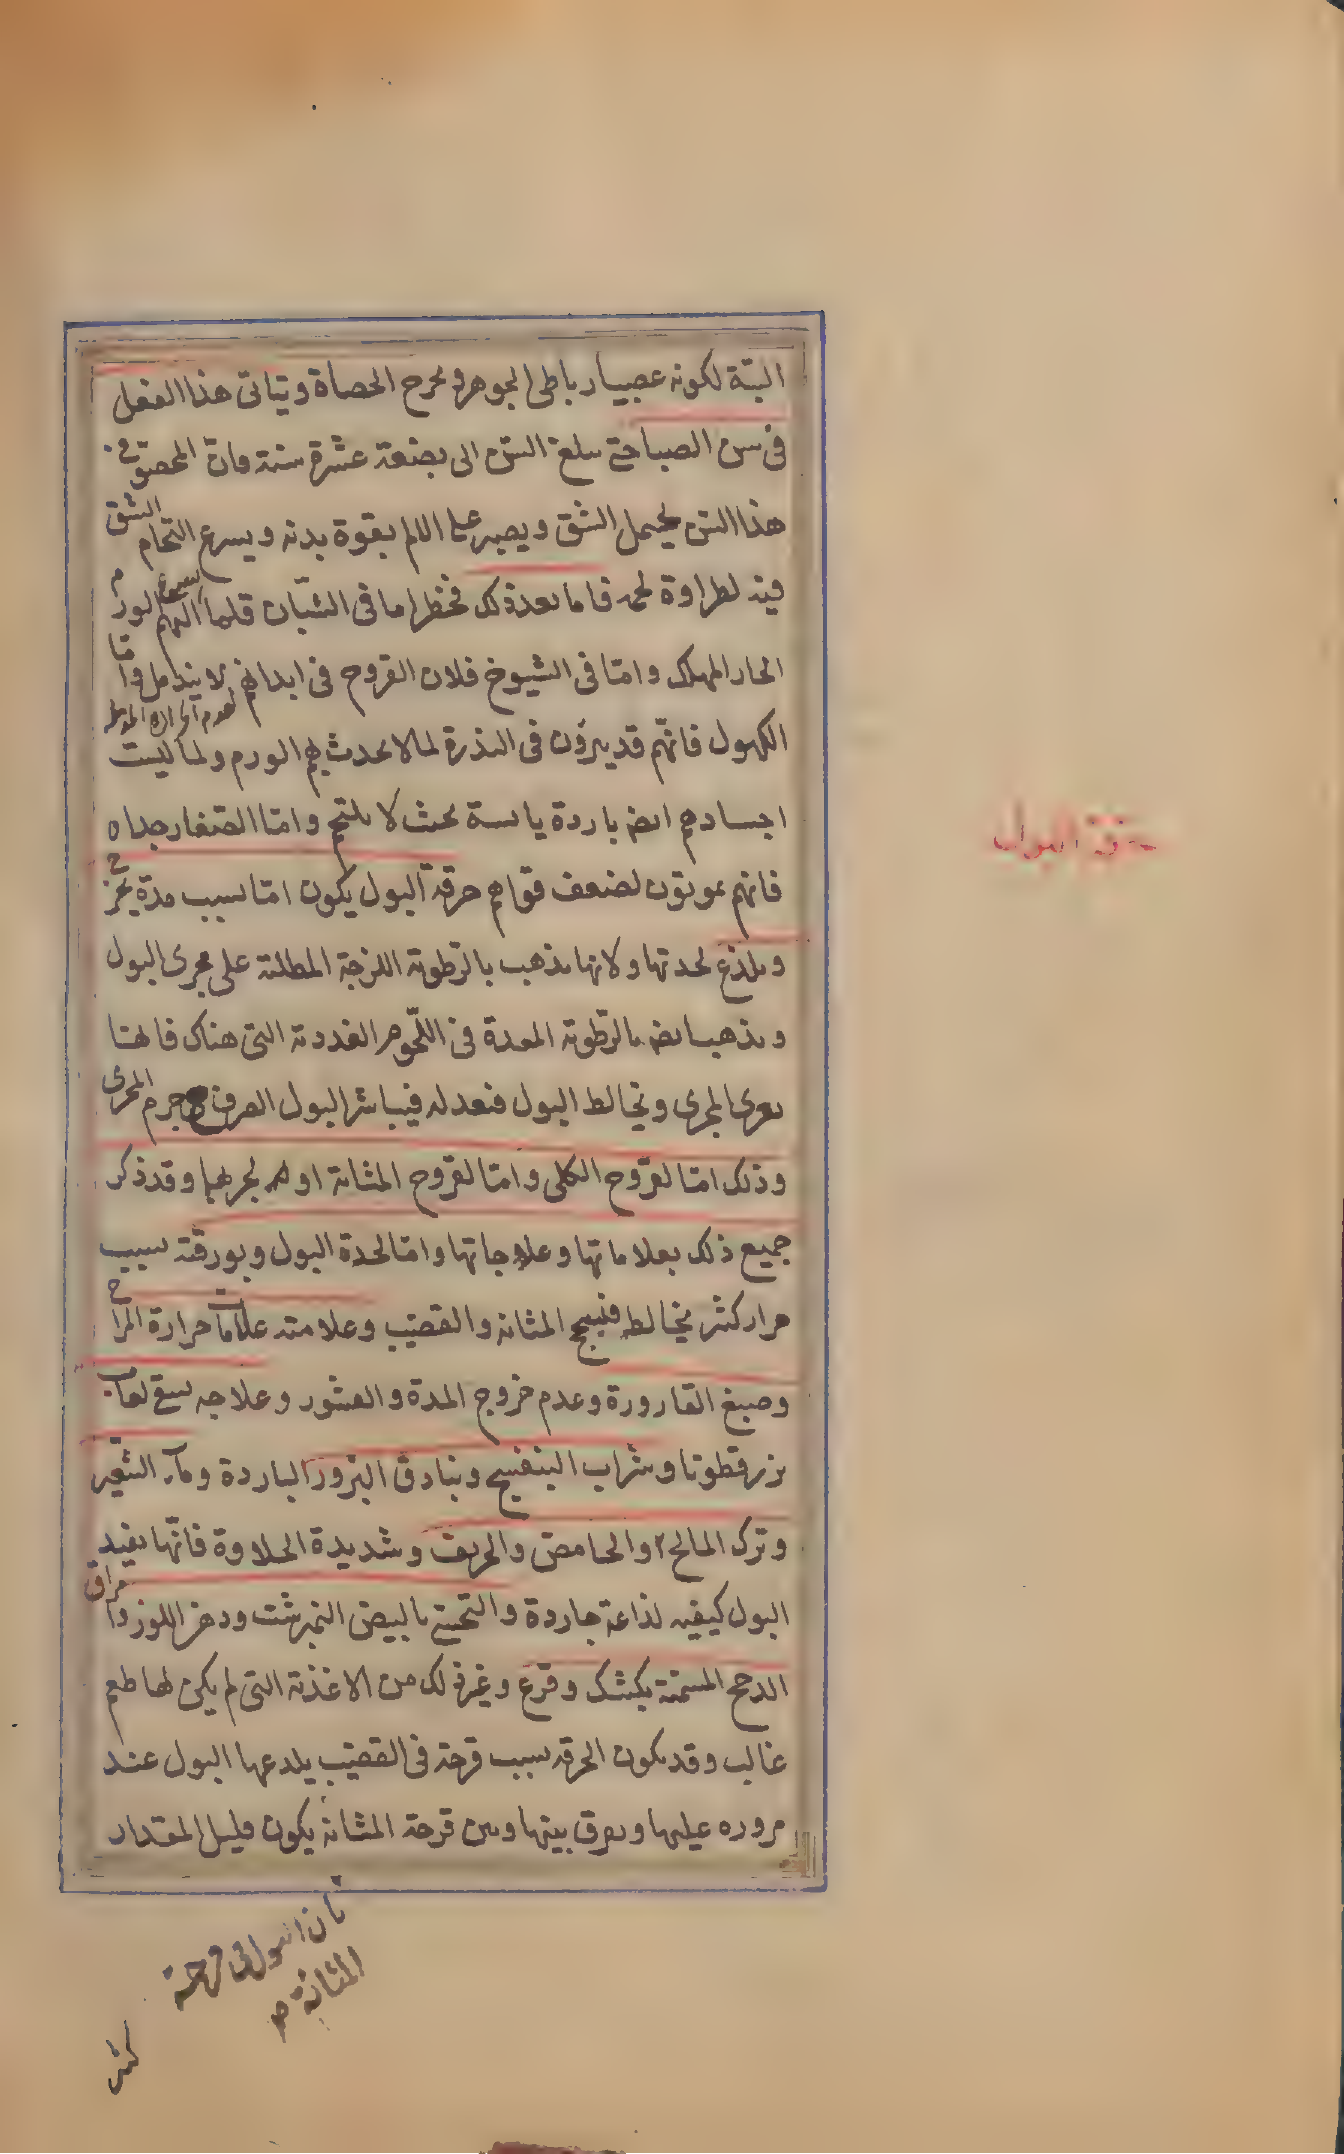 البتة لكونه عصبيا رباطى الجوهر و يخرج الحصاة و يتاتى هذا الفعل
فى سن الصبا حتى يبلغ السن الى بضعة عشرة سنة فان المحصو فى
هذا السن يحتمل الشق ويصبر على الالم بقوة بدنه ويسرع التحام الشق
فيه لطراوة لحمه فاما بعد ذلك فخطر اما فى الشبان قلما يسرع اليهم الورم
الحار المهلك واما فى الشيوخ فلان القروح فى ابدانهم لا يندمل واما
لعدم الحرارة
الكهول فانهم قد يبرؤن فى الندرة لما لا يحدث بهم الورم ولما ليست
اجسادهم ايضا باردة يابسة بحيث لا يلتحم واما الصغار جدا
فانهم يموتون لضعف قواهم حرقة البول يكون اما بسبب مدة يخرج
ويلذع لحدتها ولانها يذهب بالرطوبة اللزجة المطلية على مجرى البول
ويذهب ايضا بالرطوبة المعدة فى اللحوم الغددية التى هناك فانها
يعرى المجرى ويخالط البول فيعدله فيباشر البول الصرف جرم المجرى
وذلك اما لقروح الكلى واما لقروح المثانة او لجربها وقد ذكر
جميع ذلك بعلاماتها وعلاجاتها واما لحدة البول وبورقيته بسبب
مرار كثير يخالطه فيسحج المثانة والقضيب وعلامته علامات حرارة المزاج
وصبغ القارورة وعدم خروج المدة والقشور وعلاجه سقى لعاب
بزرقطونا وشراب البنفسج وبنادق البزور الباردة وماء الشعير
وترك المالح والحامض والحريف وشديدة الحلاوة فانها يفيد
البول كيفية لذاعة حاردة والتحسى بالبيض النمبرشت ودهن اللوز وامراق
الدجج المسمنة بكشك وقرع وغير ذلك من الاغذية التى لم يكن لها طعم
غالب وقد يكون الحرقة بسبب قرحة فى القضيب يلدعها البول عند
مروره عليها ويفرق بينها وبين قرحة المثانة يكون قليل المقدار
حرقة البول
بان البول فى قرحة
المثانة
كثير